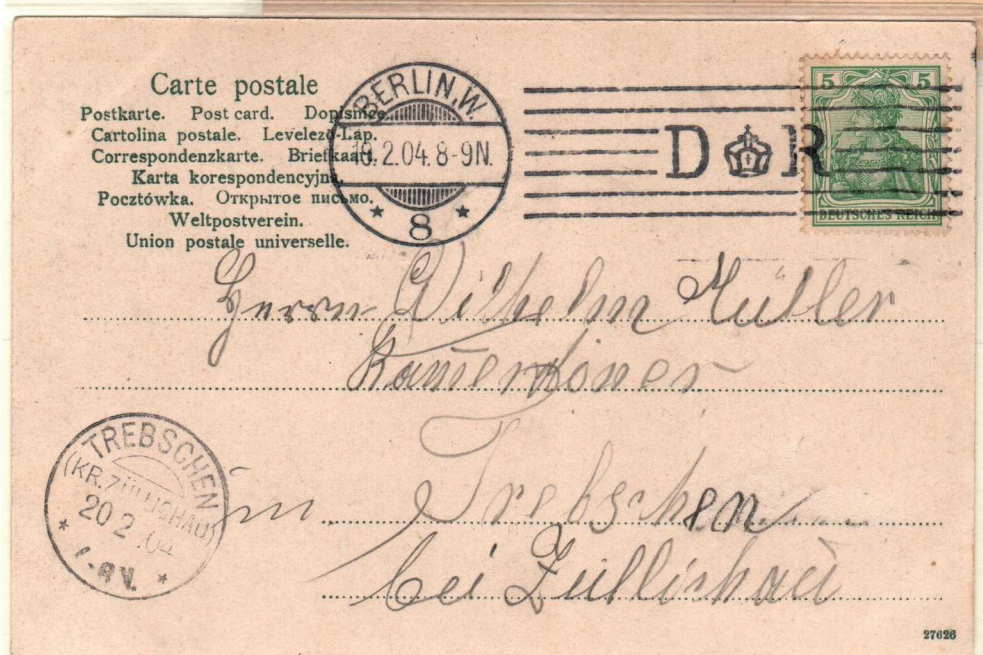 Carte postale
Postkarte. Post card. Dopisnice.
Cartolina postale. Levelező-Lap.
Correspondenzkarte. Briefkaart.
Karta korespondencyjna.
Pocztówka. Открытое письмо.
Weltpostverein.
Union postale universelle.
BERLIN, W.
2.04. 8-9N.
* 8 *
D R
5 5
DEUTSCHES REICH
Herrn Wilhelm Müller
in Trebschen
bei Züllichau
TREBSCHEN
(KR. ZÜLLICHAU)
20 2 .04
V.
27626